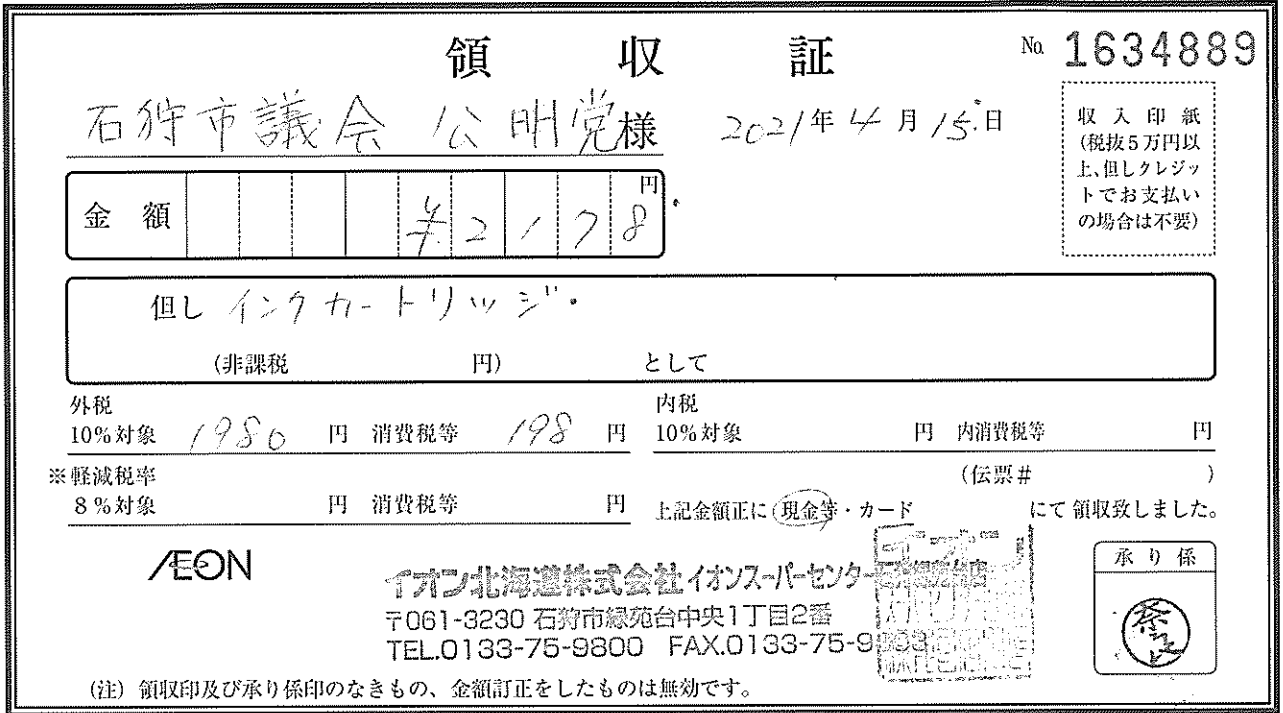 領収証
№ 1634889
石狩市議会 公明党様
2021年4月15日
収入印紙
(税抜5万円以
上、但しクレジッ
トでお支払い
の場合は不要)
金額 ¥2178円
但し インクカートリッジ
(非課税 円) として
外税
10%対象 1980 円 消費税等 198 円
内税
10%対象 円 内消費税等 円
※軽減税率
8%対象 円 消費税等 円
(伝票# )
上記金額正に(現金等・カード にて領収致しました。
ÆON
イオン北海道株式会社 イオンスーパーセンター
〒061-3230 石狩市緑苑台中央1丁目2番
TEL.0133-75-9800 FAX.0133-75-9
イオン
承り係
(注) 領収印及び承り係印のなきもの、金額訂正をしたものは無効です。